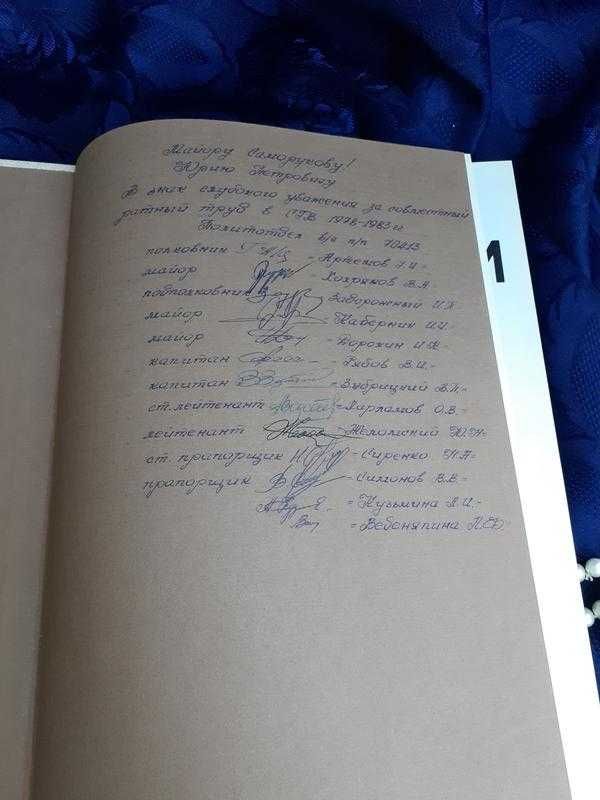 Майору Саморукову!
Юрию Петровичу
В знак глубокого уважения за совместный
ратный труд в СГВ 1978-1983 гг
Политотдел в/ч п/п 70413
полковник - Артемов
майор - Хохряков В.А.
подполковник Заворожный И.
майор - Каверник И.И.
майор - Дорохин И.
капитан - Рябов В.И.-
капитан - Зубрицкий В.П.-
ст. лейтенант - Харламов О.В.-
лейтенант - Желомский
ст. прапорщик - Сиренко
прапорщик - Симонов В.В.
= Кузьмина Л.И.-
= Веденяпина
1